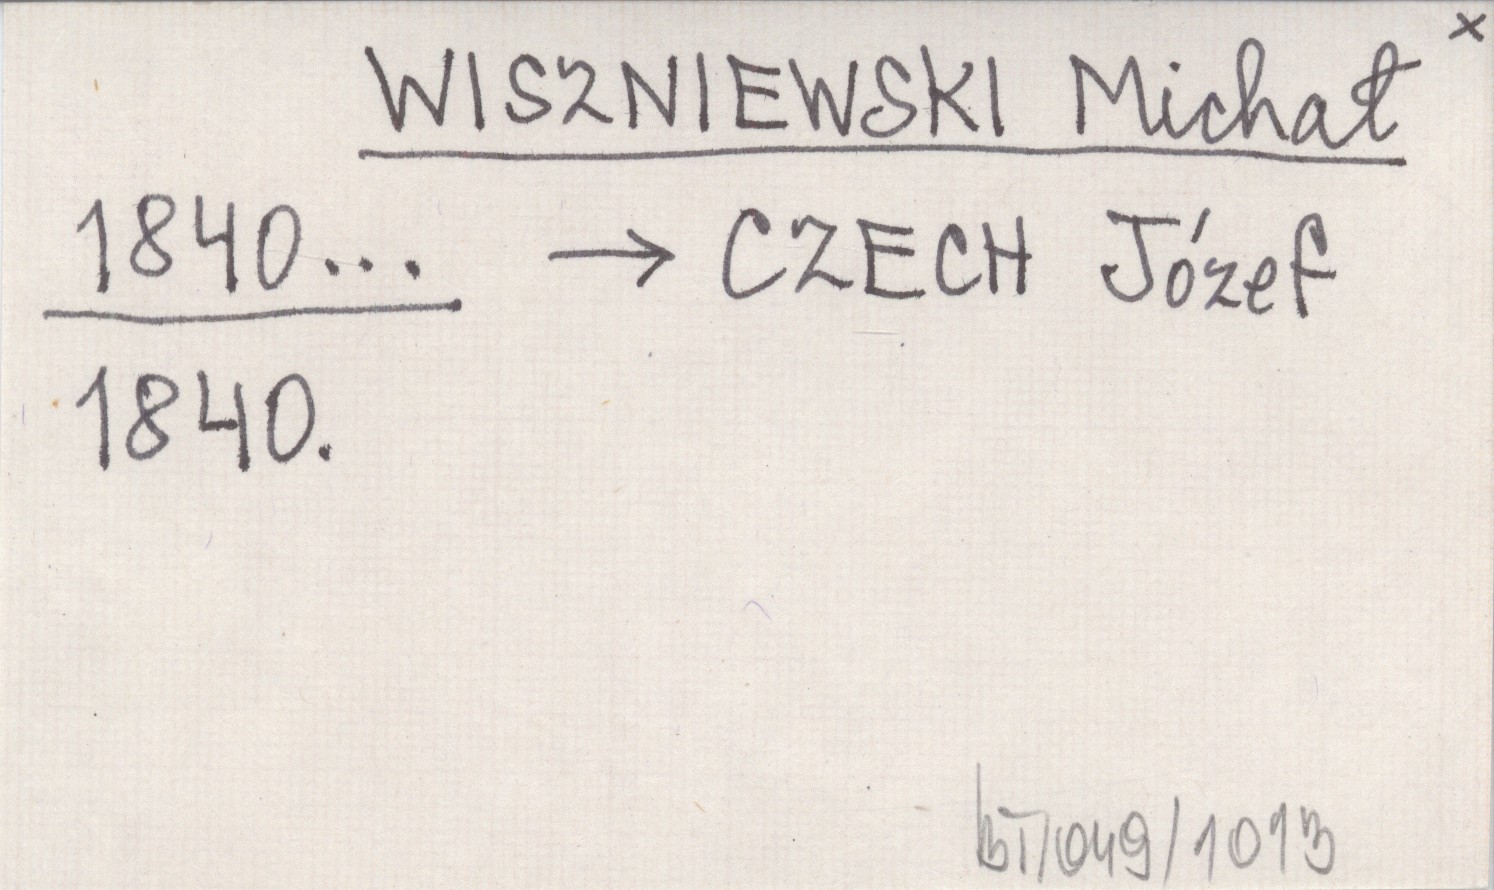 x
WISZNIEWSKI Michał
1840... → CZECH Józef
1840.
BT/049/1013